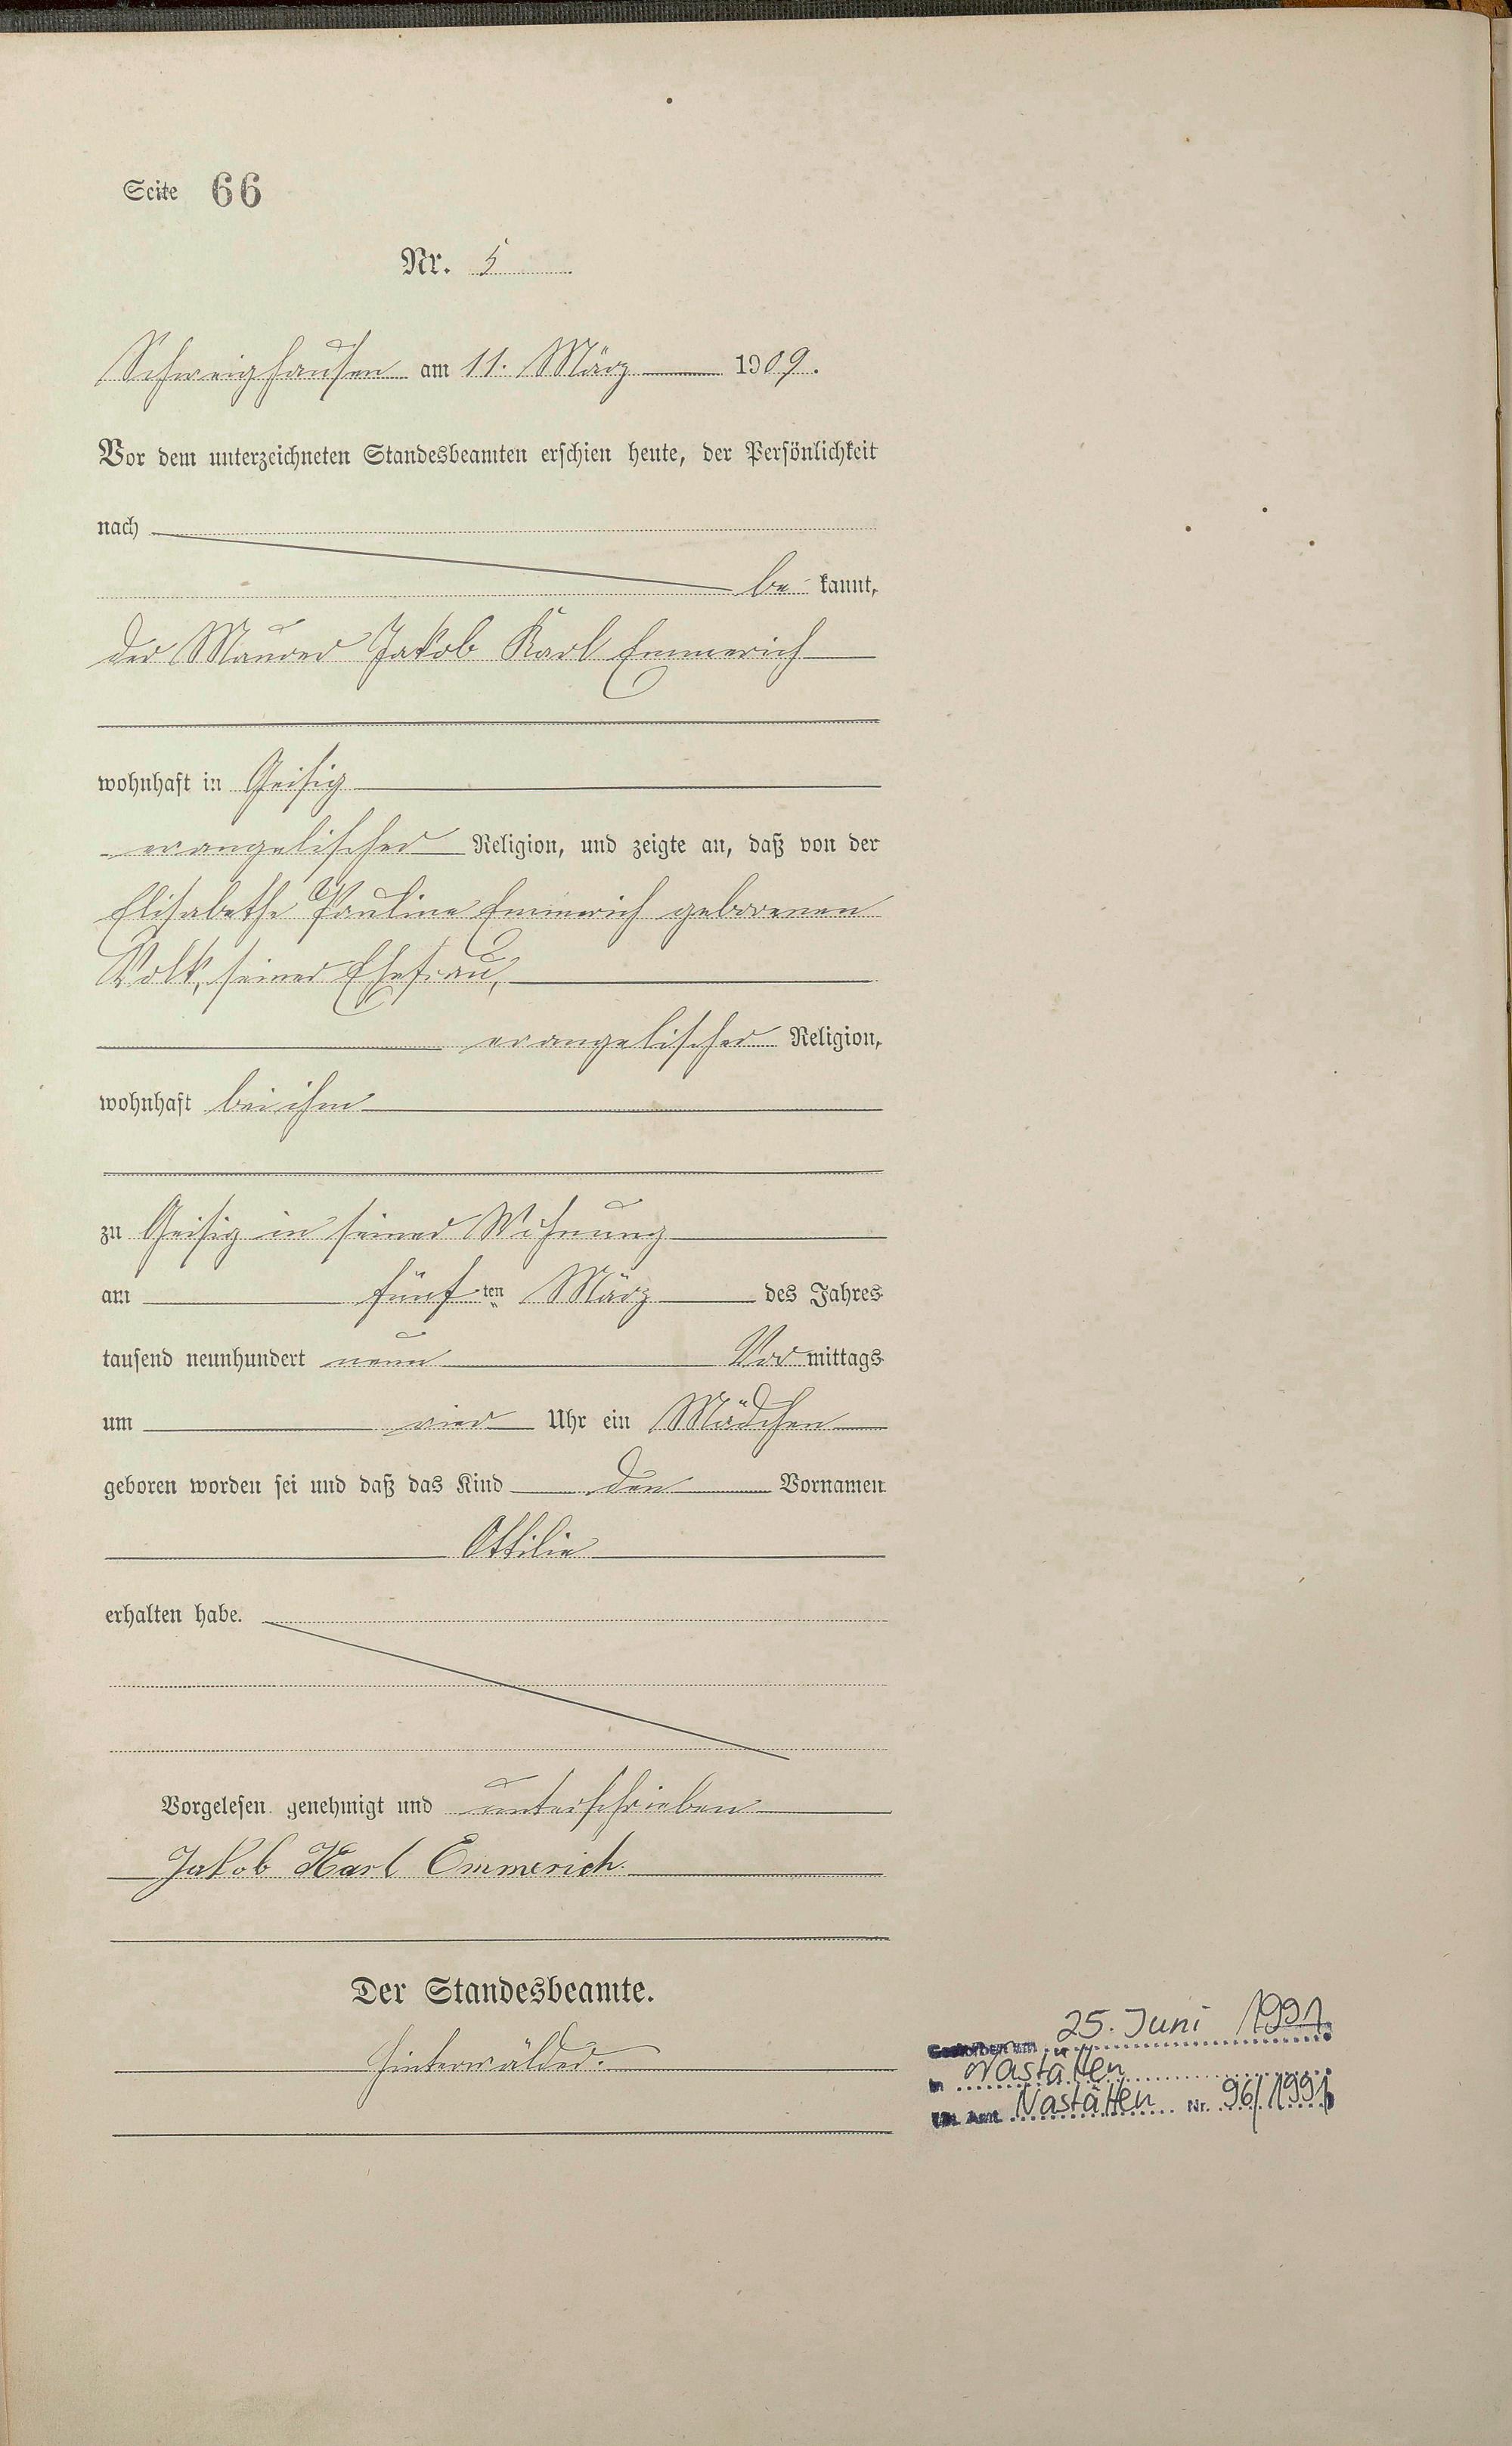 Seite 66
Nr. 5
Schweighausen am 11. März 1909.
Vor dem unterzeichneten Standesbeamten erschien heute, der Persönlichkeit
nach
be kannt,
der Maurer Jakob Karl Emmerich
wohnhaft in Geisig
evangelischer Religion, und zeigte an, daß von der
Elisabethe Pauline Emmerich geborenen
Volk, seiner Ehefrau,
evangelischer Religion,
wohnhaft bei ihm
zu Geisig in seiner Wohnung
am fünf ten März des Jahres
tausend neunhundert neun Vor mittags
um vier Uhr ein Mädchen
geboren worden sei und daß das Kind den Vornamen
Ottilie
erhalten habe.
Vorgelesen, genehmigt und unterschrieben
Jakob Karl Emmerich.
Der Standesbeamte.
Hinterwälder.
Gestorben am 25. Juni 1991
in Nastätten
Nastätten Nr. 96/1991